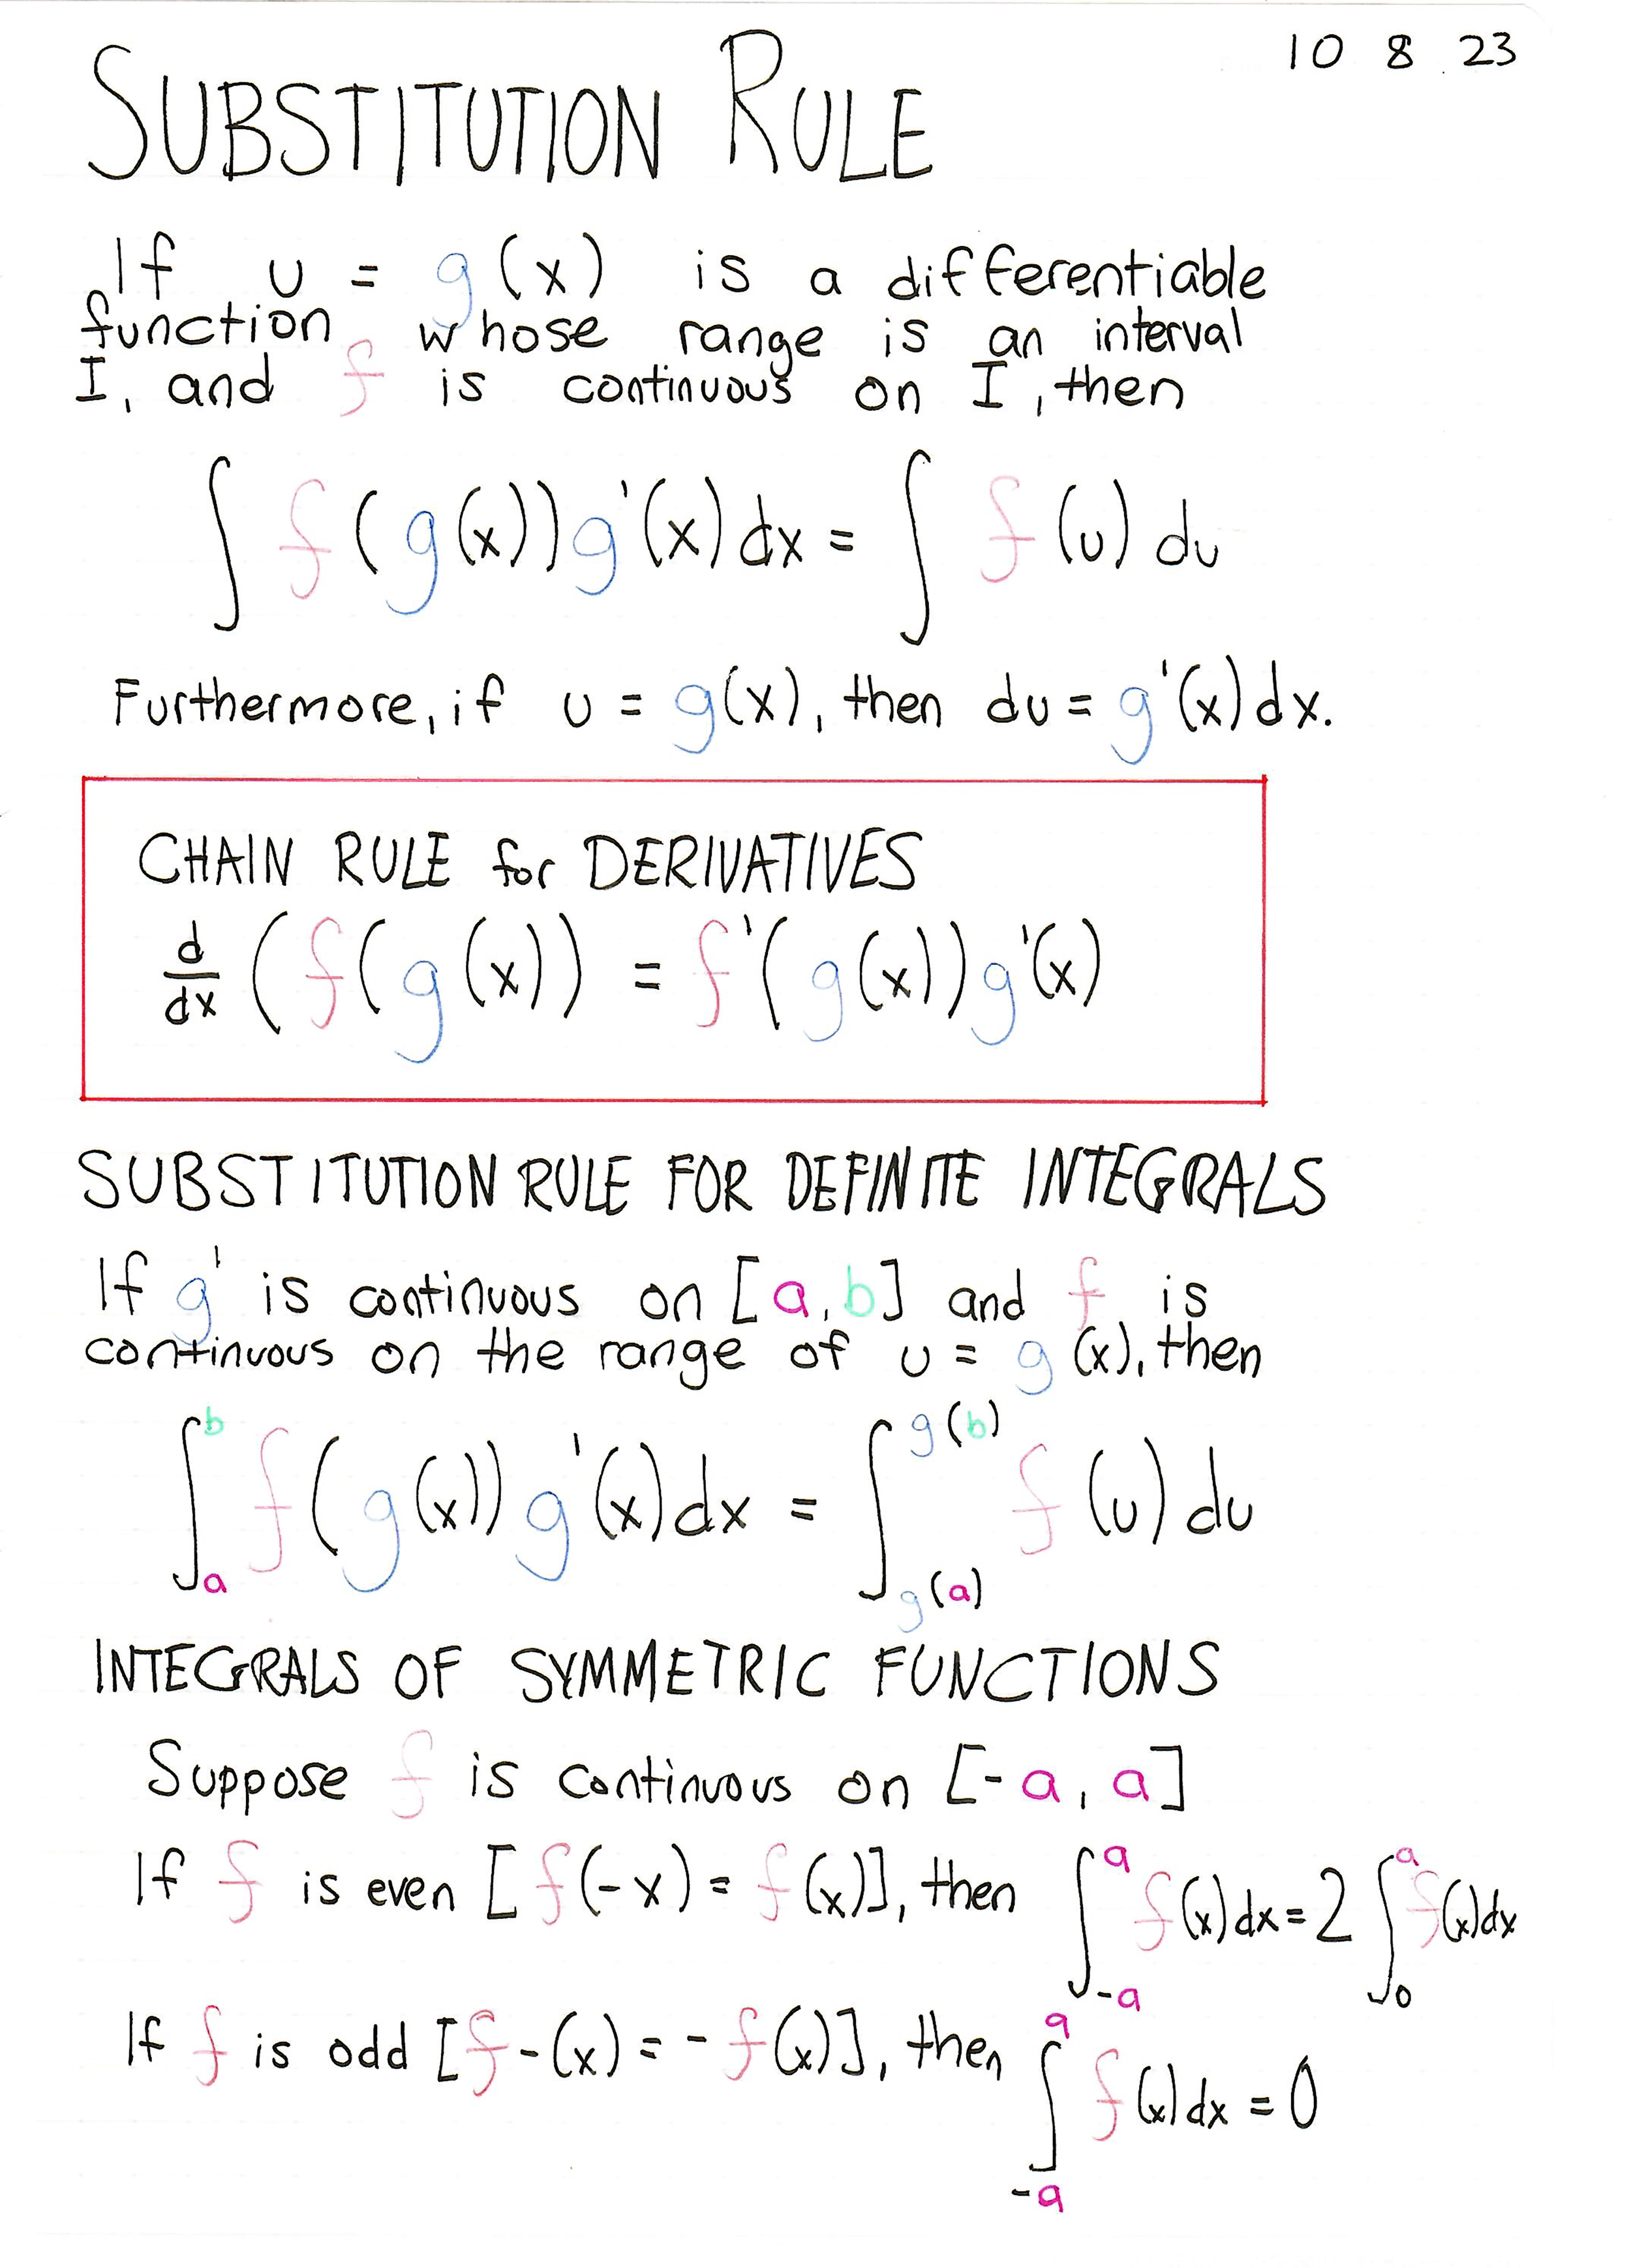 10 8 23
SUBSTITUTION RULE
If u = g(x) is a differentiable
function whose range is an interval
I, and f is continuous on I, then
∫ f(g(x))g'(x)dx = ∫ f(u)du
Furthermore, if u = g(x), then du = g'(x)dx.
CHAIN RULE for DERIVATIVES
d/dx (f(g(x)) = f'(g(x))g'(x)
SUBSTITUTION RULE FOR DEFINITE INTEGRALS
If g' is continuous on [a,b] and f is
continuous on the range of u = g(x), then
∫_a^b f(g(x))g'(x)dx = ∫_g(a)^g(b) f(u)du
INTEGRALS OF SYMMETRIC FUNCTIONS
Suppose f is continuous on [-a, a]
If f is even [f(-x) = f(x)], then ∫_-a^a f(x)dx = 2 ∫_0^a f(x)dx
If f is odd [f-(x) = -f(x)], then ∫_-a^a f(x)dx = 0